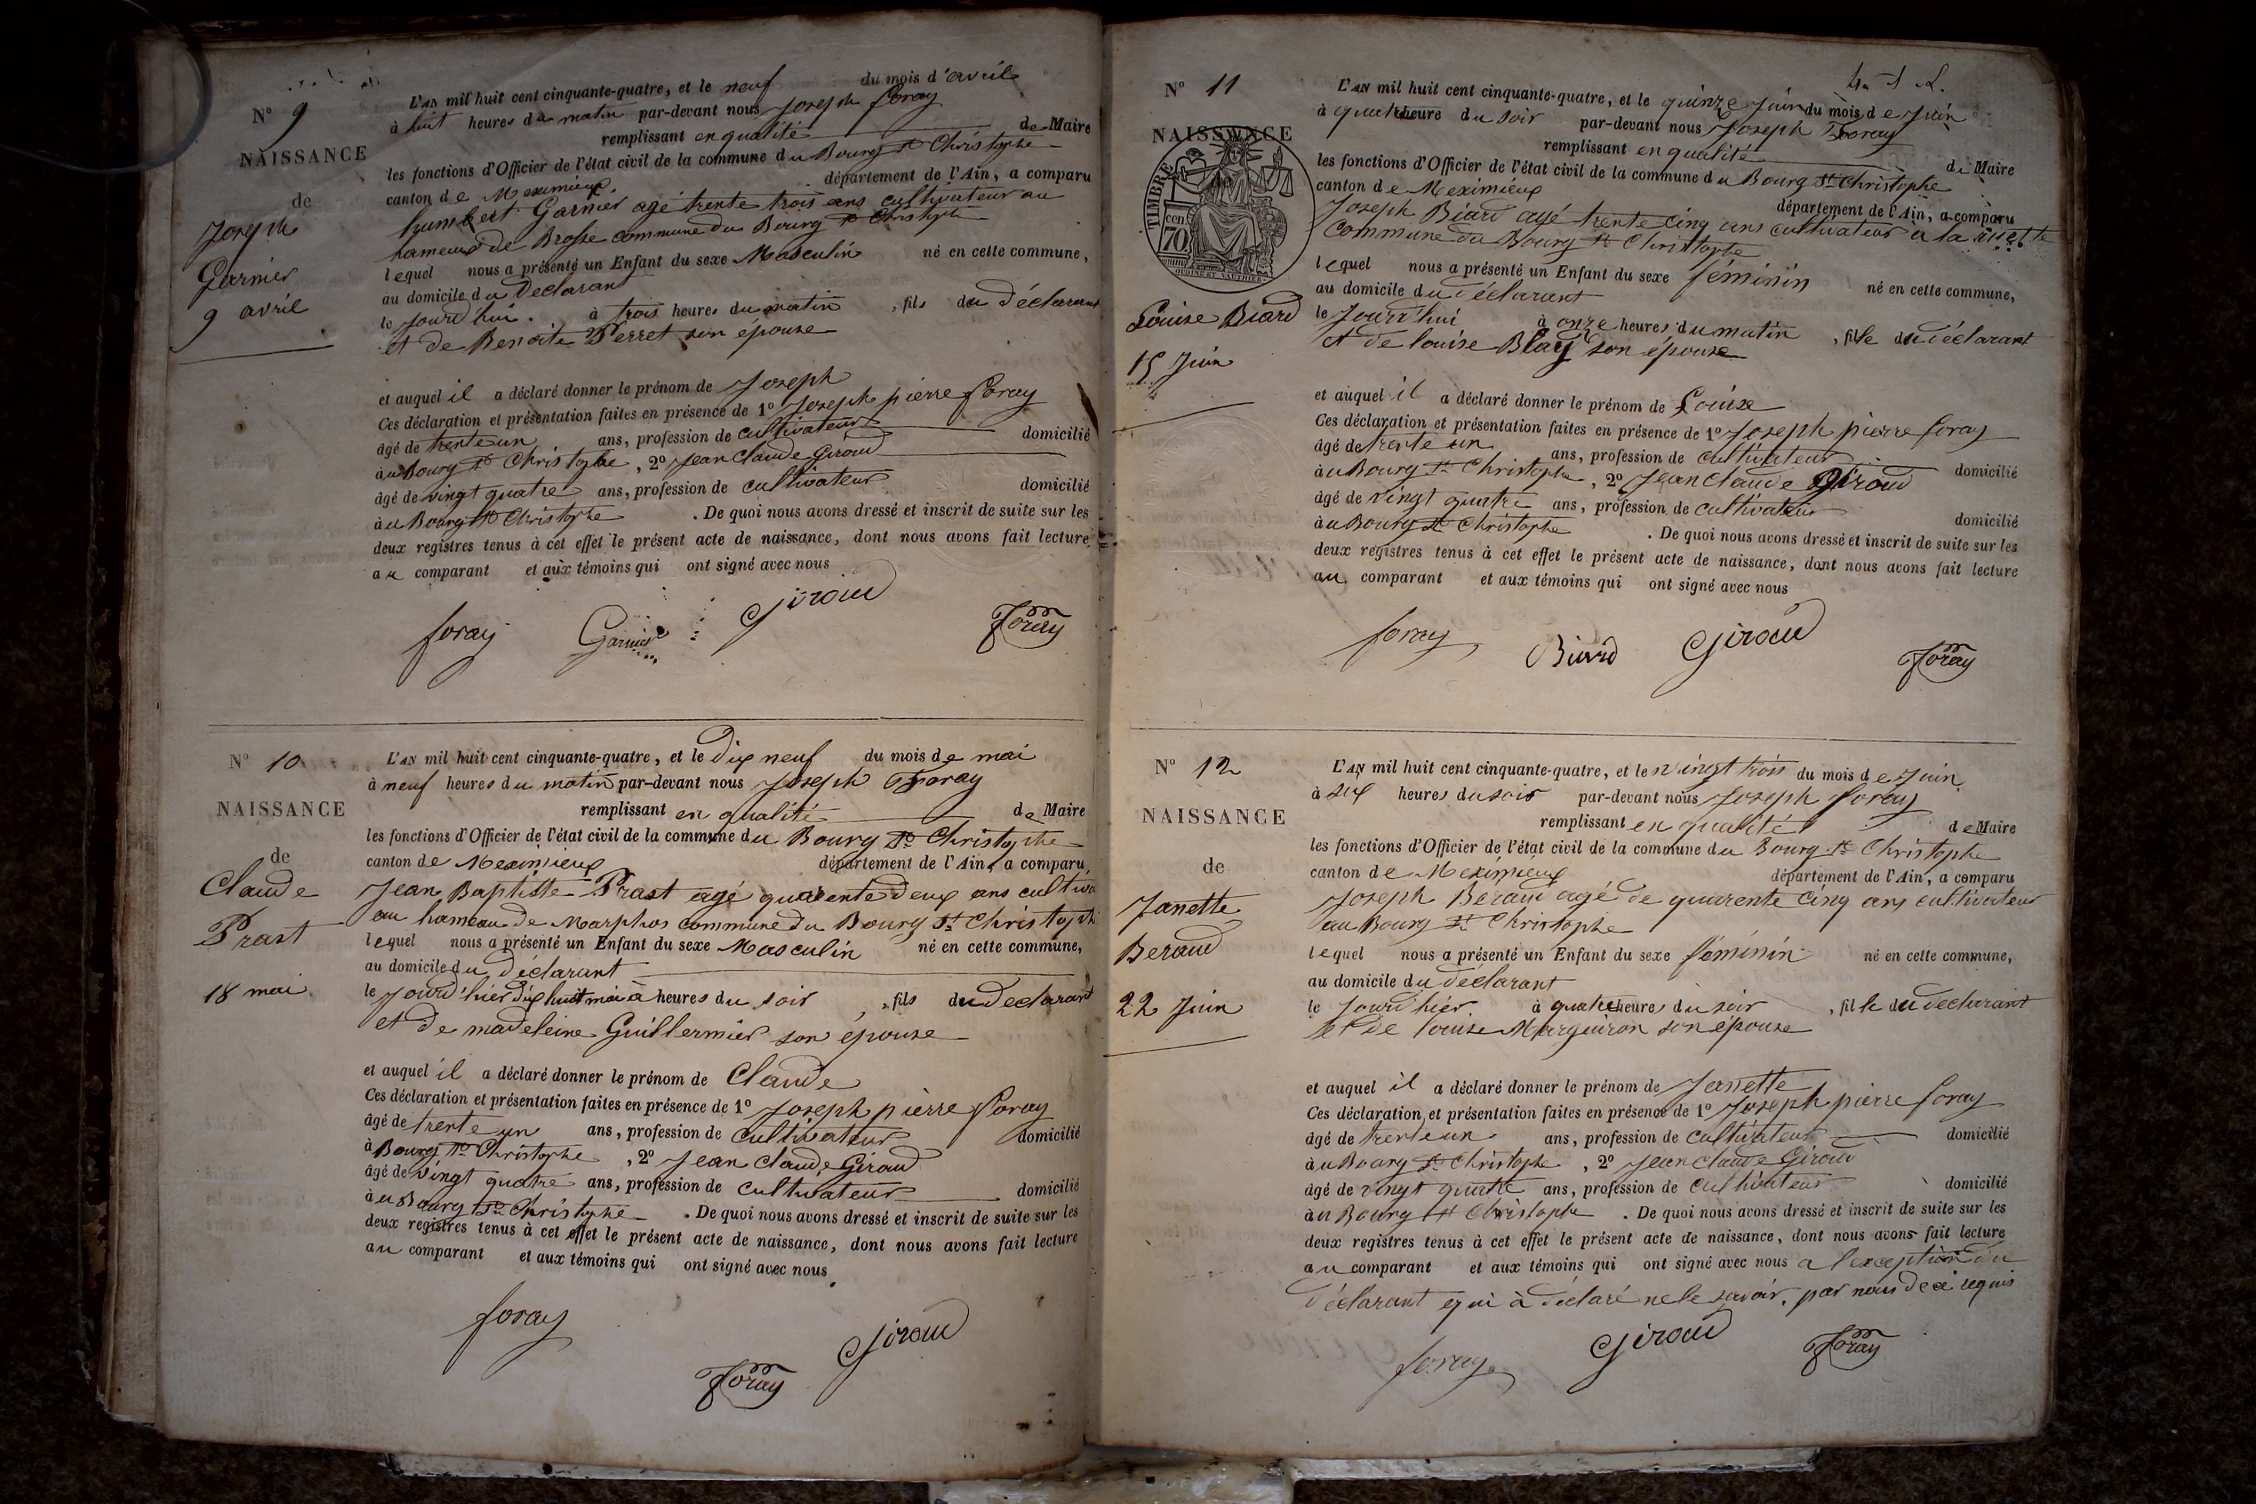 N° 9
NAISSANCE
de
Joseph
Garnier
9 avril
L'AN mil huit cent cinquante-quatre, et le neuf du mois d'avril
à huit heures du matin par-devant nous Joseph Foray
remplissant en qualité de Maire
les fonctions d'Officier de l'état civil de la commune du Bourg St Christophe
canton de Meximieux département de l'Ain, a comparu
humbert Garnier agé trente trois ans cultivateur au
hameau de Brosse commune du Bourg St Christophe
lequel nous a présenté un Enfant du sexe Masculin né en cette commune,
au domicile du Declarant
le Jourd'hui à trois heures du matin, fils du déclarant
et de Benoite Perret son épouse
et auquel il a déclaré donner le prénom de Joseph
Ces déclaration et présentation faites en présence de 1° Joseph pierre foray
âgé de trente un ans, profession de cultivateur domicilié
au Bourg St Christophe, 2° Jean Claude Giroud
âgé de vingt quatre ans, profession de cultivateur domicilié
au Bourg St Christophe. De quoi nous avons dressé et inscrit de suite sur les
deux registres tenus à cet effet le présent acte de naissance, dont nous avons fait lecture
au comparant et aux témoins qui ont signé avec nous
foray Garnier Giroud Foray
N° 10
NAISSANCE
de
Claude
Prast
18 mai
L'AN mil huit cent cinquante-quatre, et le Dix neuf du mois de mai
à neuf heures du matin par-devant nous Joseph Foray
remplissant en qualité de Maire
les fonctions d'Officier de l'état civil de la commune du Bourg St Christophe
canton de Meximieux département de l'Ain, a comparu
Jean Baptiste Prast agé quarente deux ans cultiva
au hameau de Marphos commune du Bourg St Christoph
lequel nous a présenté un Enfant du sexe Masculin né en cette commune,
au domicile du Déclarant
le Jourd'hier dix huit mai à heures du soir, fils du declarant
et de madeleine Guillermier son épouse
et auquel il a déclaré donner le prénom de Claude
Ces déclaration et présentation faites en présence de 1° Joseph pierre foray
âgé de trente un ans, profession de cultivateur domicilié
à Bourg St Christophe, 2° Jean Claude Giroud
âgé de vingt quatre ans, profession de cultivateur domicilié
au Bourg St Christophe. De quoi nous avons dressé et inscrit de suite sur les
deux registres tenus à cet effet le présent acte de naissance, dont nous avons fait lecture
au comparant et aux témoins qui ont signé avec nous
foray Foray Giroud
N° 11
NAISSANCE
TIMBRE
70 cen
Louise Biard
15 Juin
L'AN mil huit cent cinquante-quatre, et le quinze Juin du mois de Juin
à quatre heure du soir par-devant nous Joseph Foray
remplissant en qualité de Maire
les fonctions d'Officier de l'état civil de la commune du Bourg St Christophe
canton de Meximieux département de l'Ain, a comparu
Joseph Biard agé trente cinq ans cultivateur a la
commune du Bourg St Christophe
lequel nous a présenté un Enfant du sexe féminin né en cette commune,
au domicile du déclarant
le Jourd'hui à onze heures du matin, fille du déclarant
et de louise Blay son épouse
et auquel il a déclaré donner le prénom de Louise
Ces déclaration et présentation faites en présence de 1° Joseph pierre foray
âgé de trente un ans, profession de cultivateur domicilié
au Bourg St Christophe, 2° Jean Claude Giroud
âgé de vingt quatre ans, profession de cultivateur domicilié
au Bourg St Christophe. De quoi nous avons dressé et inscrit de suite sur les
deux registres tenus à cet effet le présent acte de naissance, dont nous avons fait lecture
au comparant et aux témoins qui ont signé avec nous
foray Biard Giroud Foray
N° 12
NAISSANCE
de
Janette
Beraud
22 Juin
L'AN mil huit cent cinquante-quatre, et le vingt trois du mois de Juin
à six heures du soir par-devant nous Joseph foray
remplissant en qualité de Maire
les fonctions d'Officier de l'état civil de la commune du Bourg St Christophe
canton de Meximieux département de l'Ain, a comparu
Joseph Beraud agé de quarente cinq ans cultivateur
au Bourg St Christophe
lequel nous a présenté un Enfant du sexe féminin né en cette commune,
au domicile du déclarant
le Jourd'hier à quatre heures du soir, fille du declarant
et de louise Marguiron son épouse
et auquel il a déclaré donner le prénom de Janette
Ces déclaration et présentation faites en présence de 1° Joseph pierre foray
âgé de trente un ans, profession de cultivateur domicilié
au Bourg St Christophe, 2° Jean Claude Giroud
âgé de vingt quatre ans, profession de cultivateur domicilié
au Bourg St Christophe. De quoi nous avons dressé et inscrit de suite sur les
deux registres tenus à cet effet le présent acte de naissance, dont nous avons fait lecture
au comparant et aux témoins qui ont signé avec nous a l'exception du
déclarant qui à déclaré ne le savoir, par nous de ce requis
foray Giroud Foray